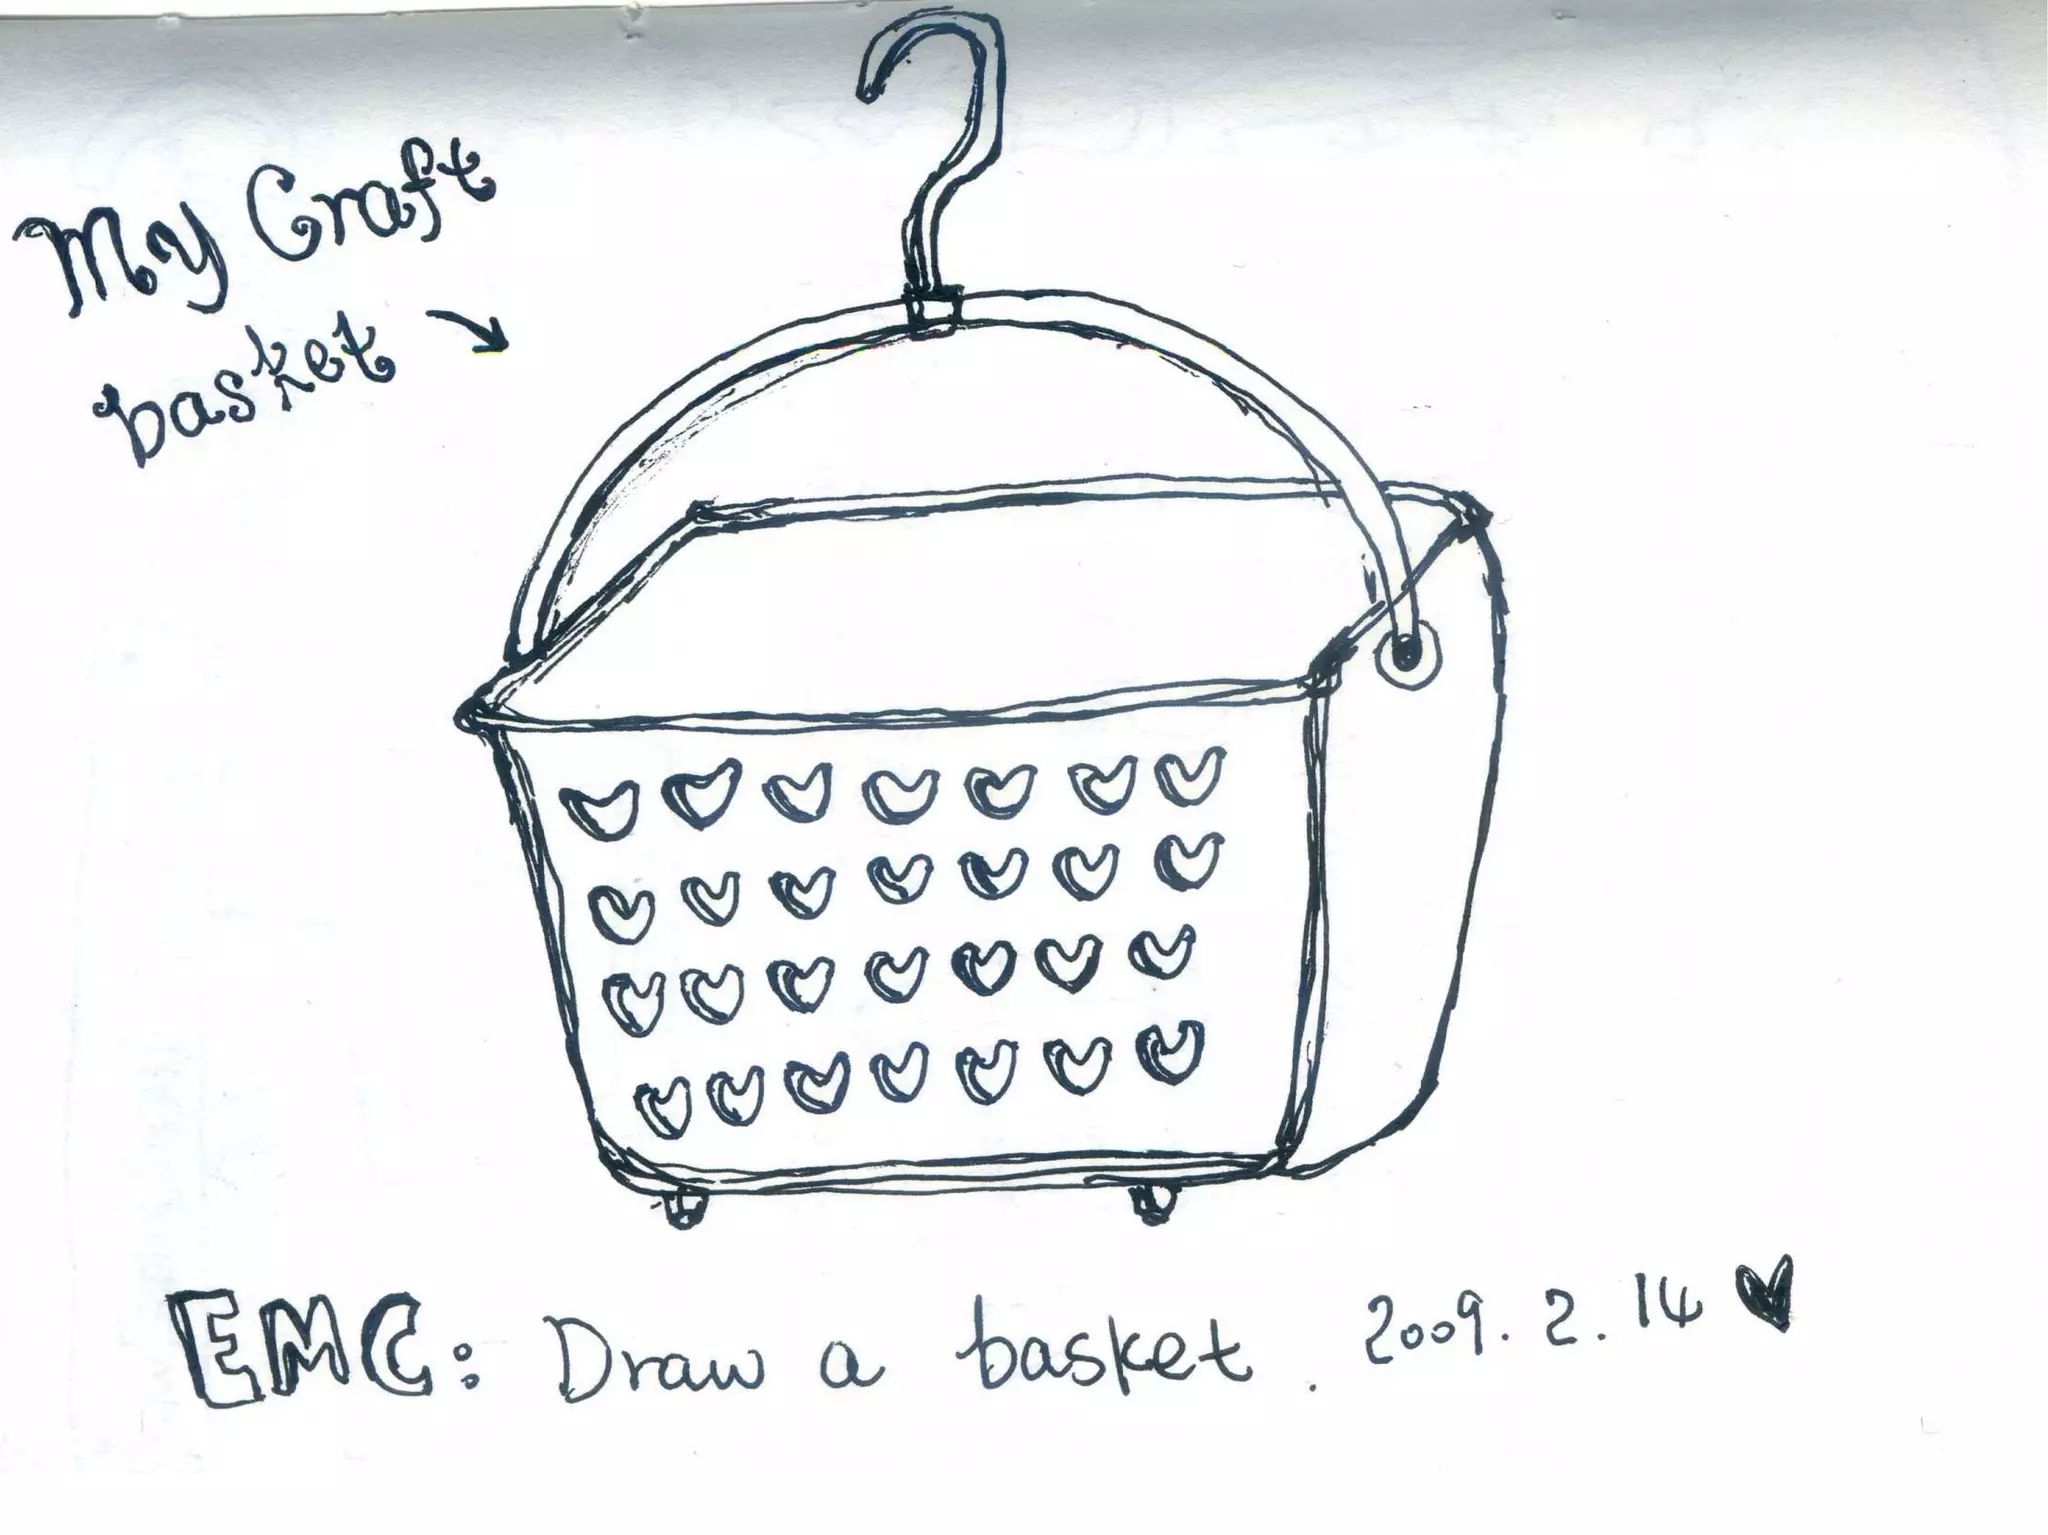 My Craft
basket
EMC: Draw a basket. 2009.2.14